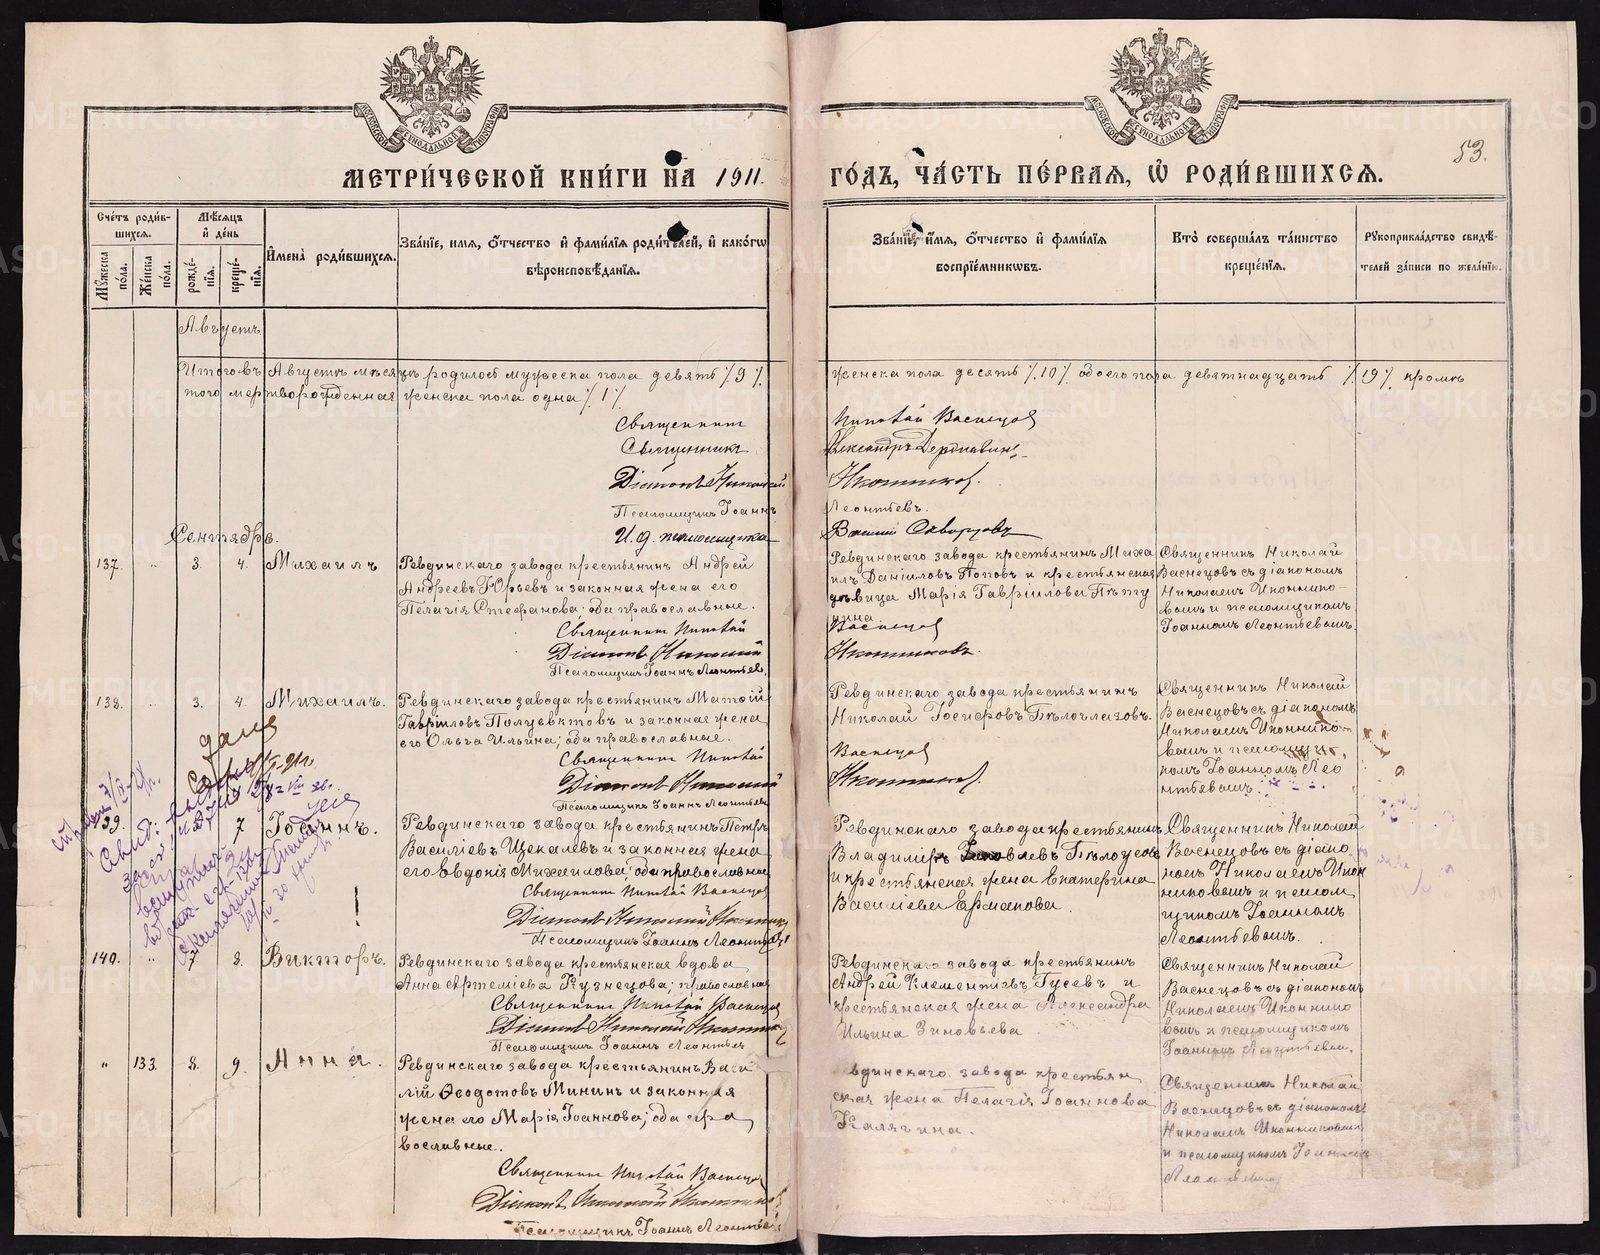 МЕТРИ́ЧЕСКОЙ КНИ́ГИ НА 1911.
ГО́ДЪ, ЧА́СТЬ ПЕ́РВАѦ, Ѡ҆ РОДИ́ВШИХСѦ.
53.
Сче́тъ роди́в-
шихсѧ.
Мꙋжеска по́ла.
Же́нска по́ла.
Мѣ́сѧцъ
и҆ де́нь
рожде́-
нїѧ.
креще́-
нїѧ.
И҆мена̀ роди́вшихсѧ.
Зва́нїе, и҆мѧ, ѻ҆́тчество и҆ фами́лїѧ роди́телей, и҆ како́гѡ
вѣроисповѣ́данїѧ.
Зва́нїе, и҆́мѧ, ѻ҆́тчество и҆ фами́лїѧ
воспрїе́мникѡвъ.
Кто̀ соверша́лъ та́инство
креще́нїѧ.
Рꙋкоприкла́дство свидѣ́-
телей за́писи по жела́нїю.
Августъ
Итого въ Августѣ мѣсяцѣ родилось мужеска пола девять /9/
женска пола десять /10/ обоего пола девятнадцать /19/ кромѣ
того мертворожденная женска пола одна /1/
Священникъ Николай Васнецовъ
Священникъ Александръ Державинъ
Діаконъ Николай Иконниковъ.
Псаломщикъ Іоаннъ Леонтьевъ.
И. д. псаломщика Василій Скворцовъ
Сентябрь.
137. " 3. 4. Михаилъ
Ревдинскаго завода крестьянинъ Андрей
Андреевъ Юрьевъ и законная жена его
Пелагія Стефанова; оба православные.
Священникъ Николай Васнецовъ
Діаконъ Николай Иконниковъ.
Псаломщикъ Іоаннъ Леонтьевъ
Ревдинскаго завода крестьянинъ Миха
илъ Даніиловъ Поповъ и крестьянская
дѣвица Марія Гавріилова Пѣту
хина
Священникъ Николай
Васнецовъ съ діакономъ
Николаемъ Иконнико-
вымъ и псаломщикомъ
Іоанномъ Леонтьевымъ.
138. " 3. 4. Михаилъ.
Ревдинскаго завода крестьянинъ Матѳій
Гавріиловъ Полуевктовъ и законная жена
его Ольга Ильина; оба православные.
Священникъ Николай Васнецовъ
Діаконъ Николай Иконниковъ.
Псаломщикъ Іоаннъ Леонтьевъ
Ревдинскаго завода крестьянинъ
Николай Іосифовъ Бѣлоглазовъ.
Священникъ Николай
Васнецовъ съ діакономъ
Николаемъ Иконнико-
вымъ и псаломщи
комъ Іоанномъ Лео
нтьевымъ.
139. 7 Іоаннъ.
Ревдинскаго завода крестьянинъ Петръ
Василіевъ Щекалевъ и законная жена
его Евдокія Михаилова; оба православные
Священникъ Николай Васнецовъ
Діаконъ Николай Иконниковъ
Псаломщикъ Іоаннъ Леонтьевъ
Ревдинскаго завода крестьянинъ
Владиміръ Бѣлоусовъ
и крестьянская жена Екатерина
Василіева Ермакова.
Священникъ Николай
Васнецовъ съ діако
номъ Николаемъ Икон
никовымъ и псалом
щикомъ Іоанномъ
Леонтьевымъ.
140. " 7 8. Викторъ.
Ревдинскаго завода крестьянская вдова
Анна Артеміева Кузнецова; православная
Священникъ Николай Васнецовъ
Діаконъ Николай Иконниковъ
Псаломщикъ Іоаннъ Леонтьевъ
Ревдинскаго завода крестьянинъ
Андрей Климентіевъ Гусевъ и
крестьянская жена Александра
Ильина Зиновьева
Священникъ Николай
Васнецовъ съ діакономъ
Николаемъ Иконнико
вымъ и псаломщикомъ
Іоанномъ Леонтьевым.
" 133. 8. 9. Анна.
Ревдинскаго завода крестьянинъ Васи
лій Ѳеодотовъ Мининъ и законная
жена его Марія Іоаннова; оба пра
вославные.
Священникъ Николай Васнецовъ
Діаконъ Николай Иконниковъ
Псаломщикъ Іоаннъ Леонтьевъ
Ревдинскаго завода крестьян
ская жена Пелагія Іоаннова
Калягина.
Священникъ Николай
Васнецовъ съ діакономъ
Николаемъ Иконниковымъ
и псаломщикомъ Іоанномъ
Леонтьевымъ
METRIKI.GASO-URAL.RU